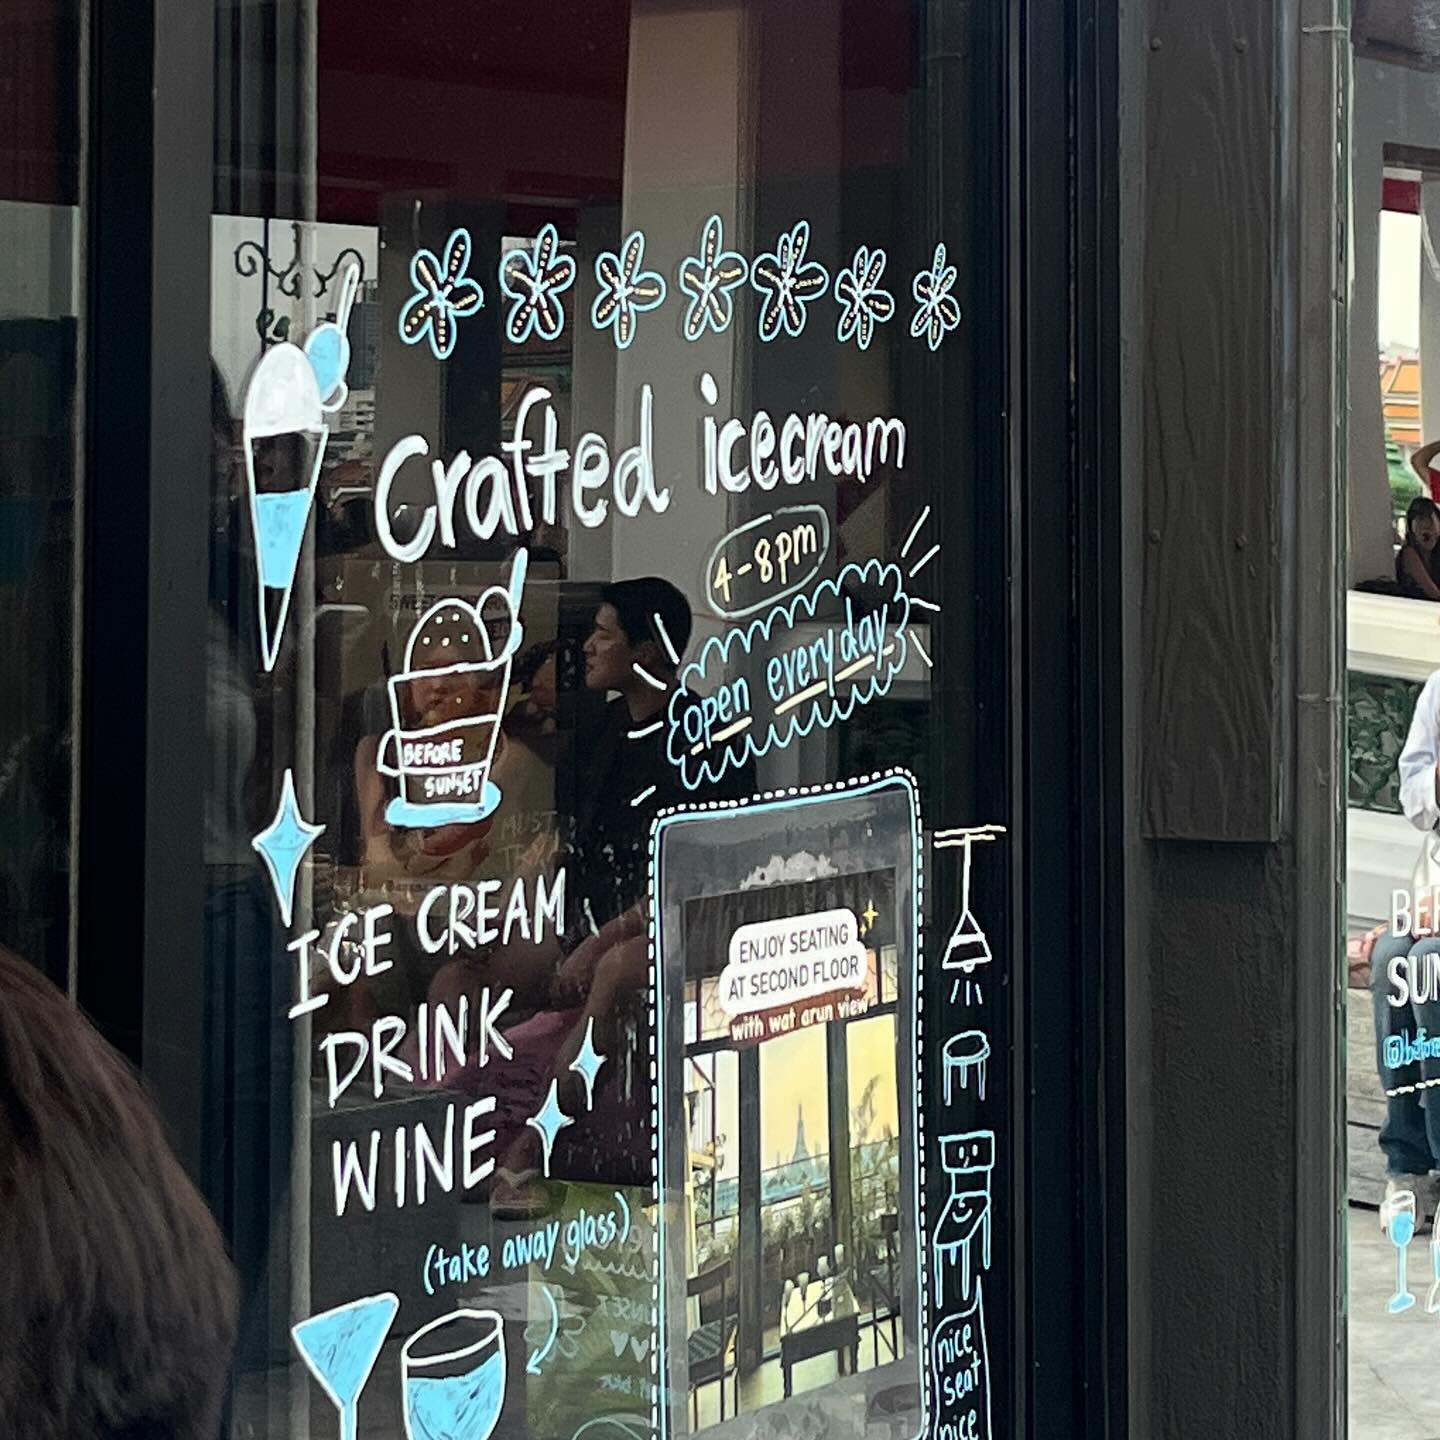 Crafted icecream
4-8pm
open everyday
BEFORE
SUNSET
ICE CREAM
DRINK
WINE
(take away glass)
ENJOY SEATING
AT SECOND FLOOR
with wat arun view
nice
seat
nice